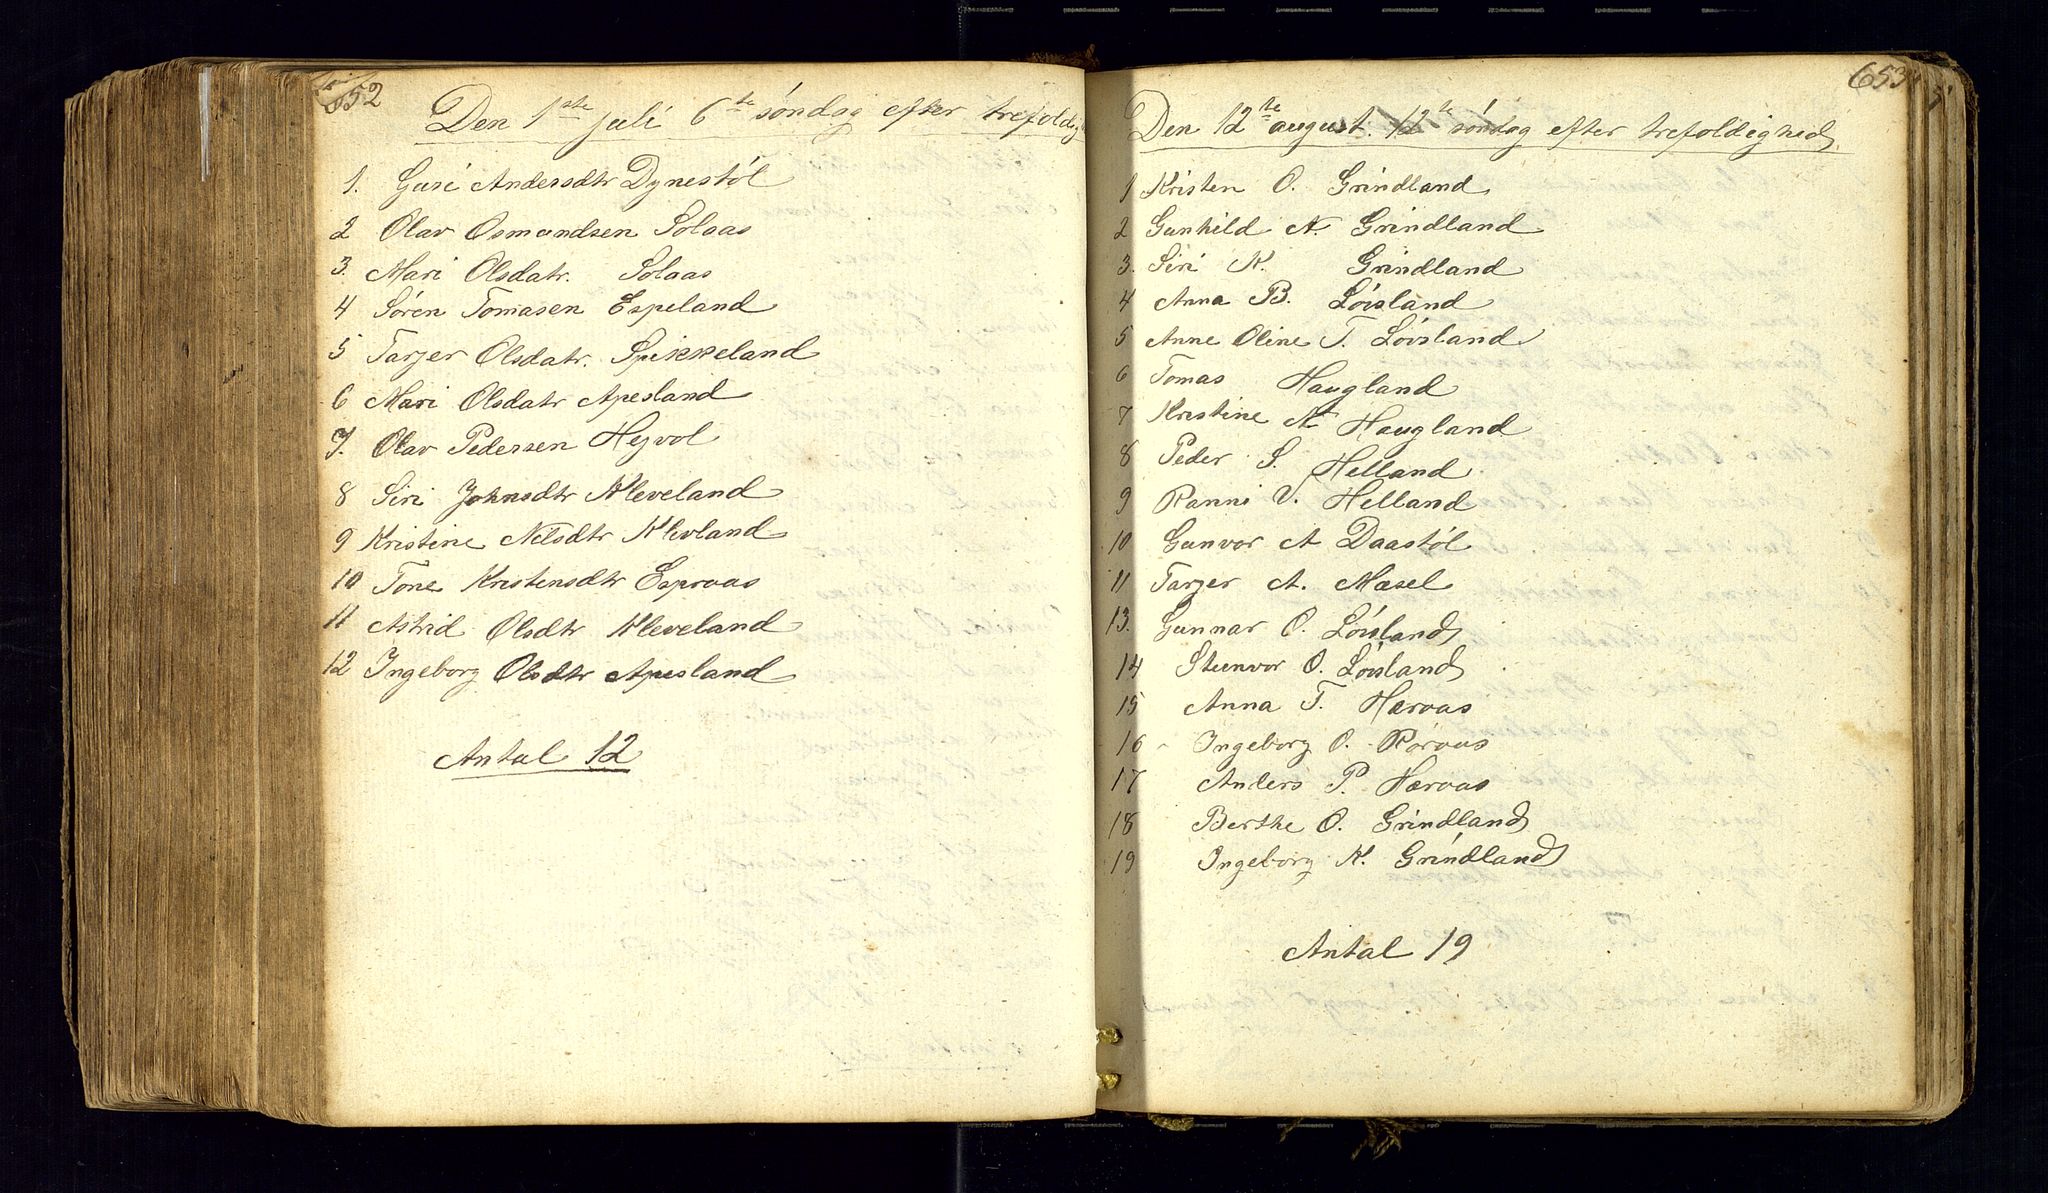 652
Den 1ste juli 6te søndag efter trefoldigh
1. Guri Andersdtr Dynestøl
2 Olav Osmundsen Solaas
3. Mari Olsdatr. Solaas
4 Søren Tomasen Espeland
5 Tarjer Olsdatr. Spikkeland
6 Mari Olsdatr Apesland
7. Olav Pedersen Hejvol
8 Siri Johnsdtr Kleveland
9 Kristine Nelsdtr Klevland
10 Tone Kristensdtr Espraas
11 Astrid Olsdtr Kleveland
12 Ingeborg Olsdtr Apesland
Antal 12
653
Den 12te august. 12te søndag efter trefoldighed
1 Kristen O. Grindland
2 Gunhild A. Grindland
3. Siri K. Grindland
4 Anna B. Løvsland
5 Anne Oline T. Løvsland
6 Tomas Haugland
7 Kristine A Haugland
8 Peder S. Helland
9 Ranni V. Helland
10 Gunvor A Daastøl
11 Tarjer A. Mæsel
13. Gunnar O. Løvsland
14 Steenvor O. Løvsland
15 Anna T. Hærvas
16 Ingeborg O. Rorvas
17 Anders P. Hærvas
18 Berthe O. Grindland
19 Ingeborg K. Grindland
Antal 19